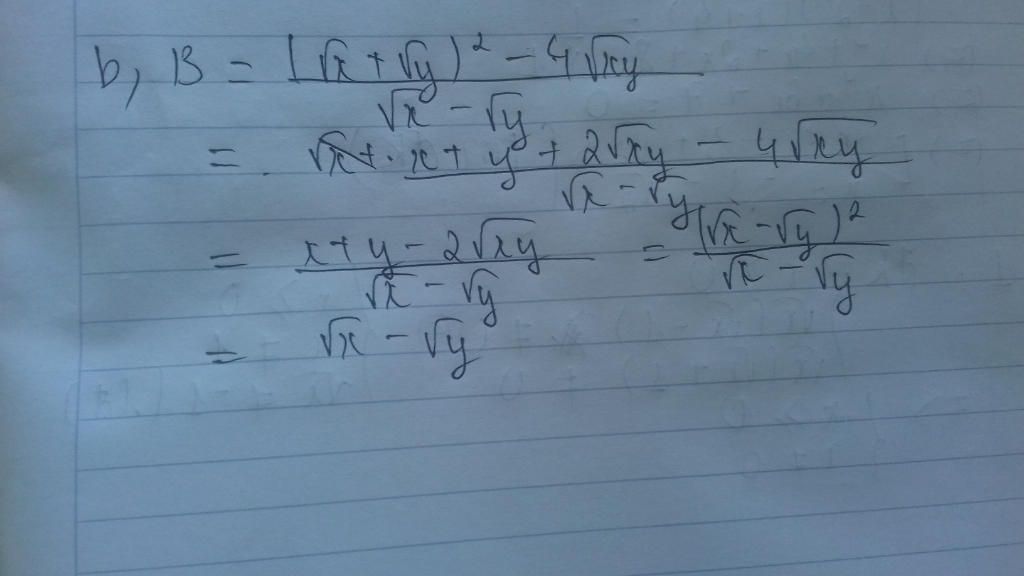 b, B = ((√x + √y)² - 4√xy) / (√x - √y)
= (x + y + 2√xy - 4√xy) / (√x - √y)
= (x + y - 2√xy) / (√x - √y) = (√x - √y)² / (√x - √y)
= √x - √y